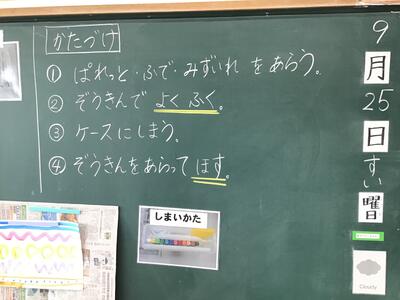 かたづけ
① ぱれっと・ふで・みずいれ をあらう。
② ぞうきんで よく ふく。
③ ケースにしまう。
④ ぞうきんをあらって ほす。
しまいかた
9
月
25
日
すい
曜
Cloudy